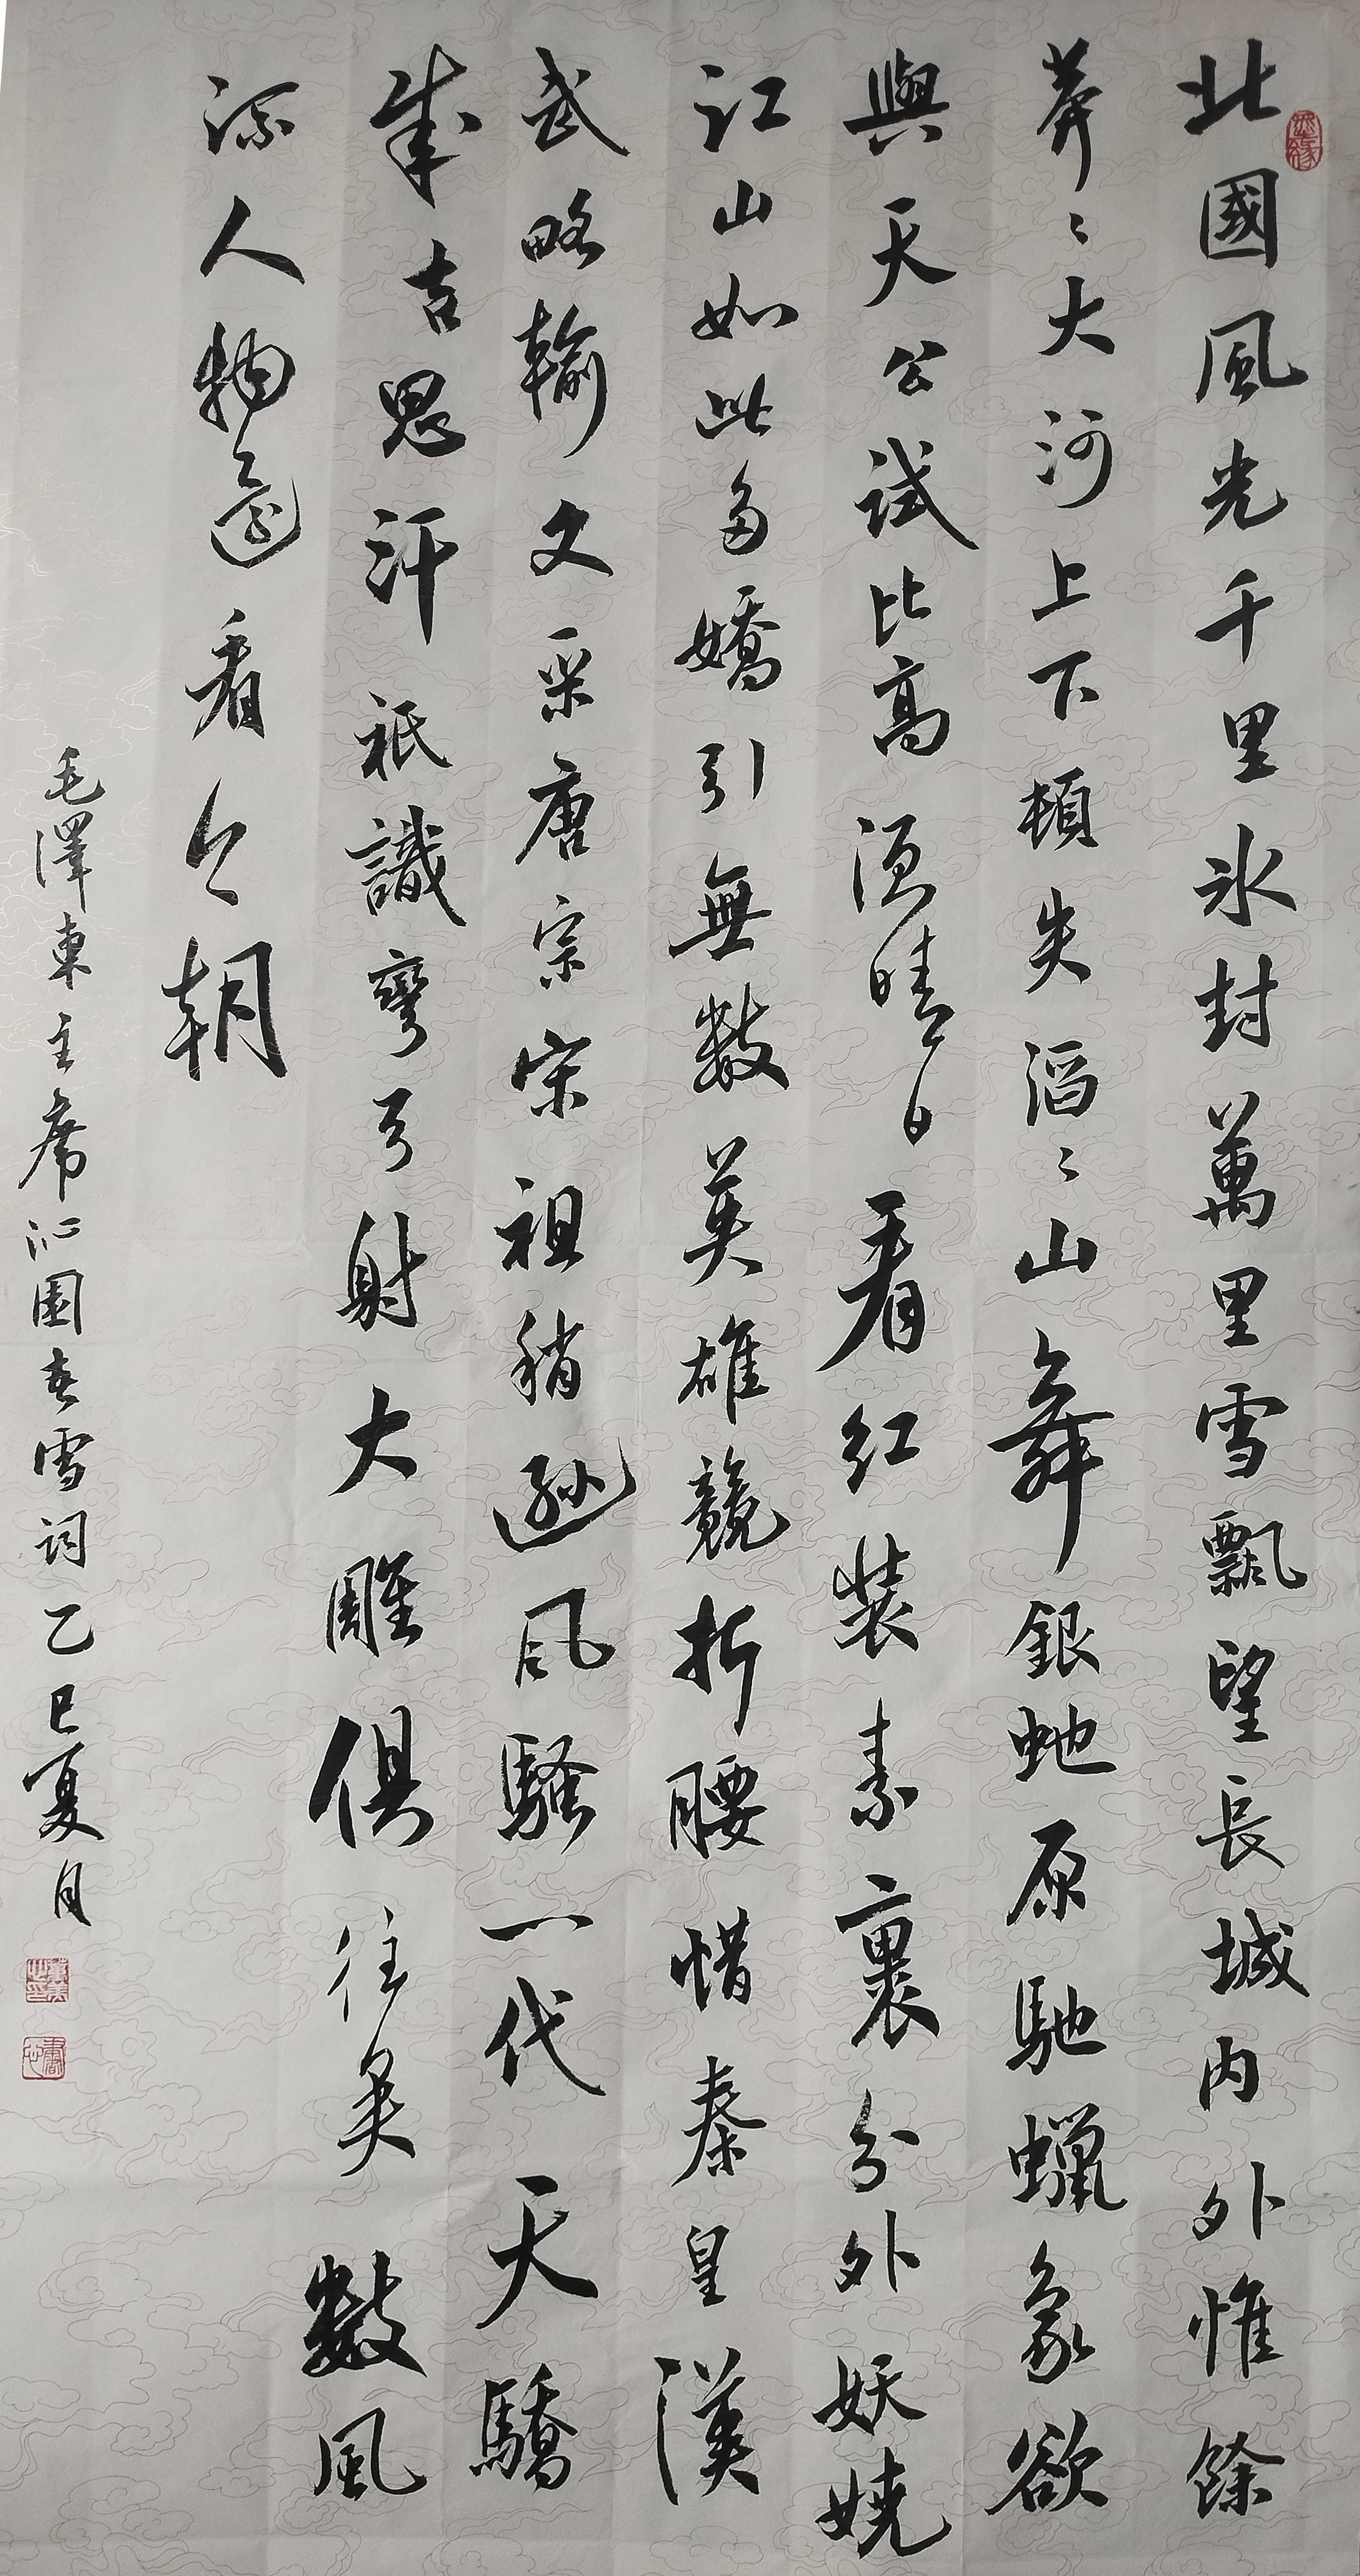 北國風光千里冰封萬里雪飄望長城内外惟餘
莽〻大河上下頓失滔〻山舞銀虵原馳蠟象欲
與天公試比高湏晴日看红装素裹分外妖嬈
江山如此多嬌引無數英雄競折腰惜秦皇漢
武略輸文采唐宗宋祖稍遜風騷一代天驕
成吉思汗祇識彎弓射大雕俱往矣數風
流人物還看今朝
毛澤東主席沁園春雪詞乙巳夏月